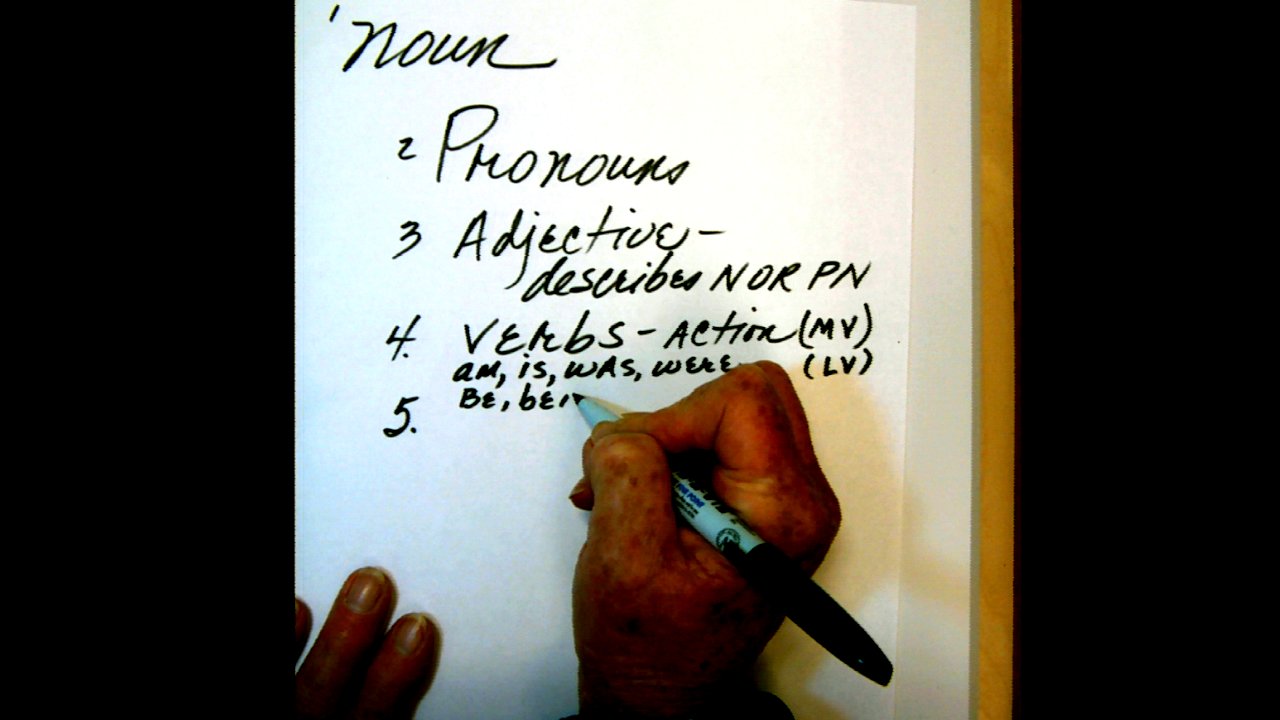 1 noun
2 Pronouns
3 Adjective -
describes N OR PN
4. VERbS - ACtion (MV)
am, is, WAS, WERE (LV)
BE, bEin
5.